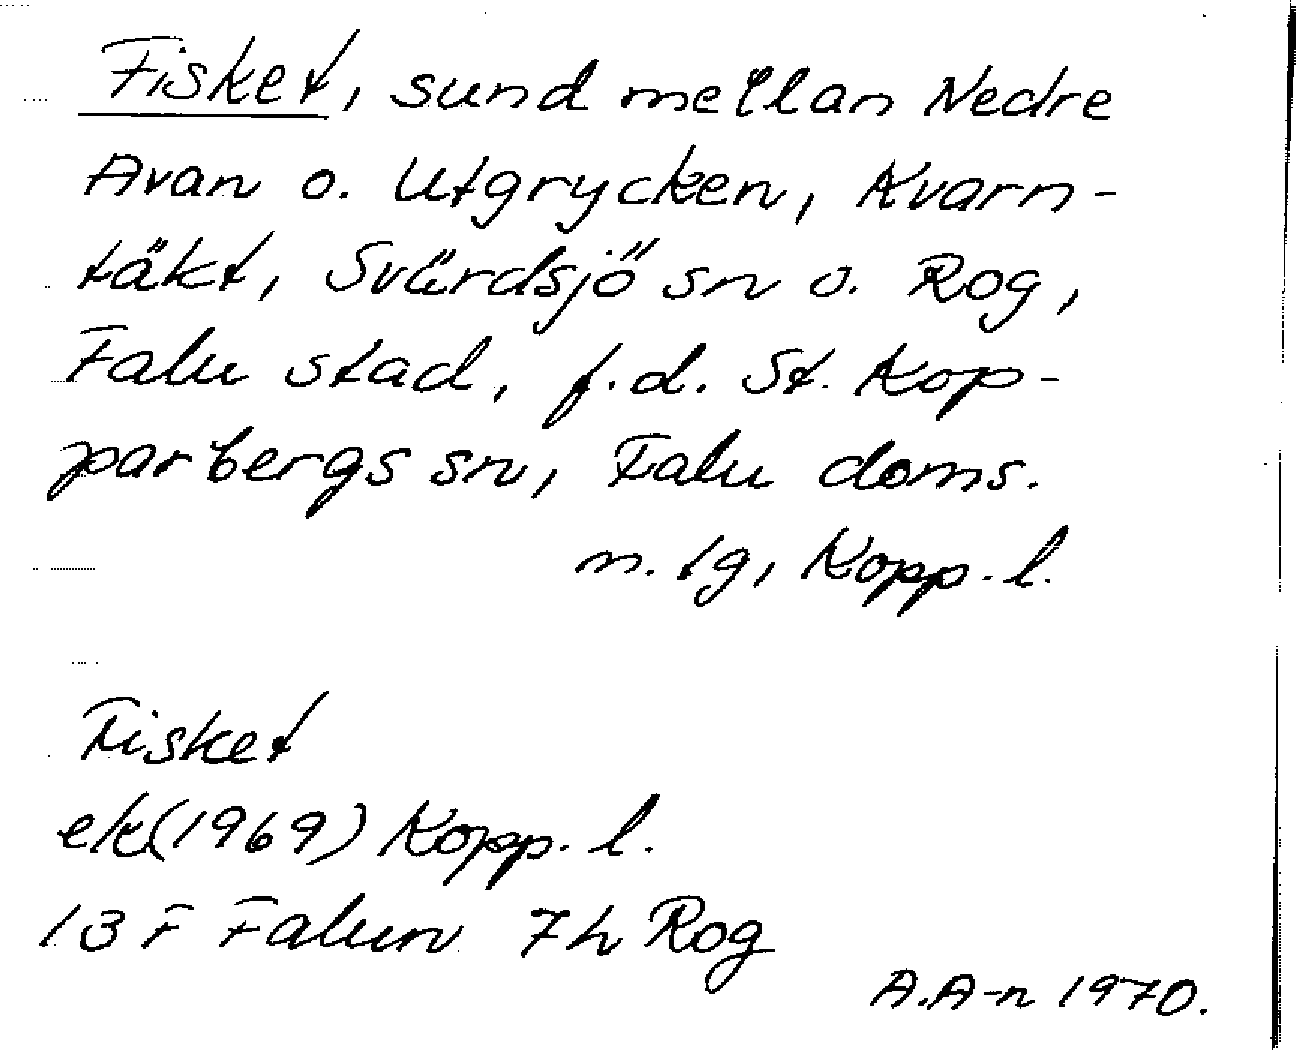 Fisket, sund mellan Nedre
Avan o. Utgrycken, Kvarn-
täkt, Svärdsjö sn o. Rog,
Falu stad, f.d. St. Kop-
parbergs sn, Falu doms.
n. tg, Kopp. l.
Fisket
ek (1969) Kopp. l.
13 F Falun 7h Rog
A.A-n 1970.